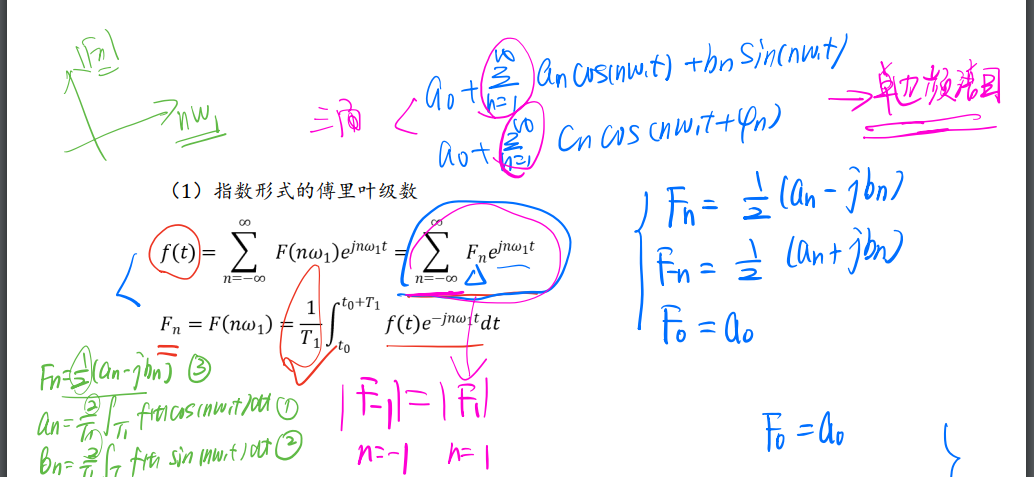 |Fn|
nω₁
三角
a₀ + ∑_{n=1}^{∞} aₙcos(nω₁t) + bₙ sin(nω₁t)
a₀ + ∑_{n=1}^{∞} Cₙ cos(nω₁t + φₙ)
→ 单边频谱图
（1）指数形式的傅里叶级数
f(t) = ∑_{n=-∞}^{∞} F(nω₁)e^{jnω₁t} = ∑_{n=-∞}^{∞} Fₙe^{jnω₁t}
Δ
Fₙ = F(nω₁) = \frac{1}{T₁} ∫_{t₀}^{t₀+T₁} f(t)e^{-jnω₁t}dt
Fn = \frac{1}{2} (an - jbn)
Fn = \frac{1}{2} (an + jbn)
F₀ = a₀
Fn = \frac{1}{2}(an - jbn) ③
an = \frac{2}{T₁} ∫_{T₁} f(t) cos(nω₁t)dt ①
bn = \frac{2}{T₁} ∫_{T} f(t) sin(nω₁t)dt ②
|F₋₁| = |F₁|
n=-1 n=1
F₀ = a₀